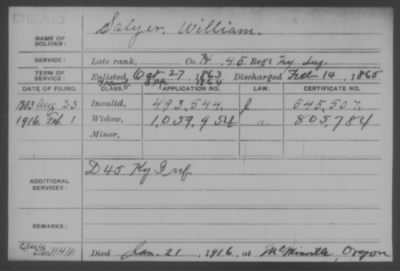 DEAD
NAME OF SOLDIER: Salyer, William.
SERVICE: Late rank, Co. H, 45 Reg't Ky. Inf.
TERM OF SERVICE: Enlisted Oct 27, 1863 Discharged Feb 14, 1865
1864
DATE OF FILING. CLASS. APPLICATION NO. LAW. CERTIFICATE NO.
1883 Aug 23 Invalid, 493,544. 545,507.
1916. Feb 1 Widow, 1,059,954 805,784
Minor,
ADDITIONAL SERVICES: D 45 Ky Inf
REMARKS:
Died Jan. 21, 1916, at McMinnville, Oregon